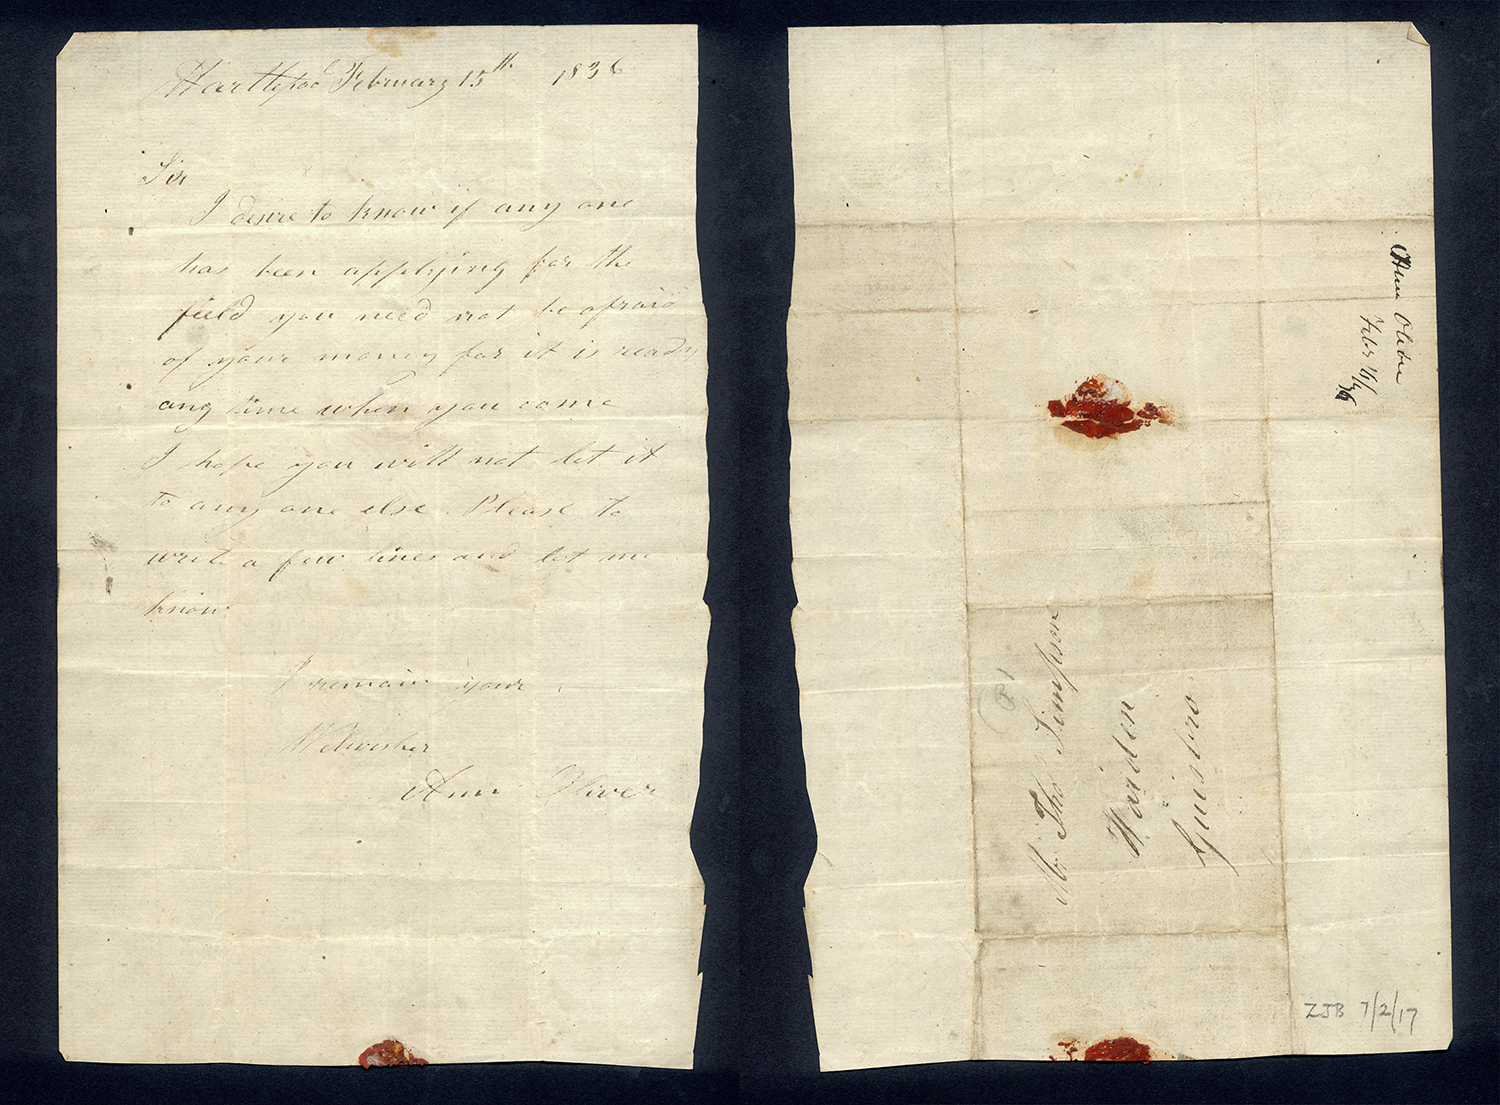 Hartlepool February 15th 1836
Sir
I desire to know if any one
has been applying for the
field you need not be afraid
of your money for it is ready
any time when you come
I hope you will not let it
to any one else. Please to
write a few lines and let me
know
I remain your
Welwisher
Ann Oliver
Ann Oliver
Feby 16/36
Mr Thos Simpson
Warden
Guisbro
ZJB 7/2/17